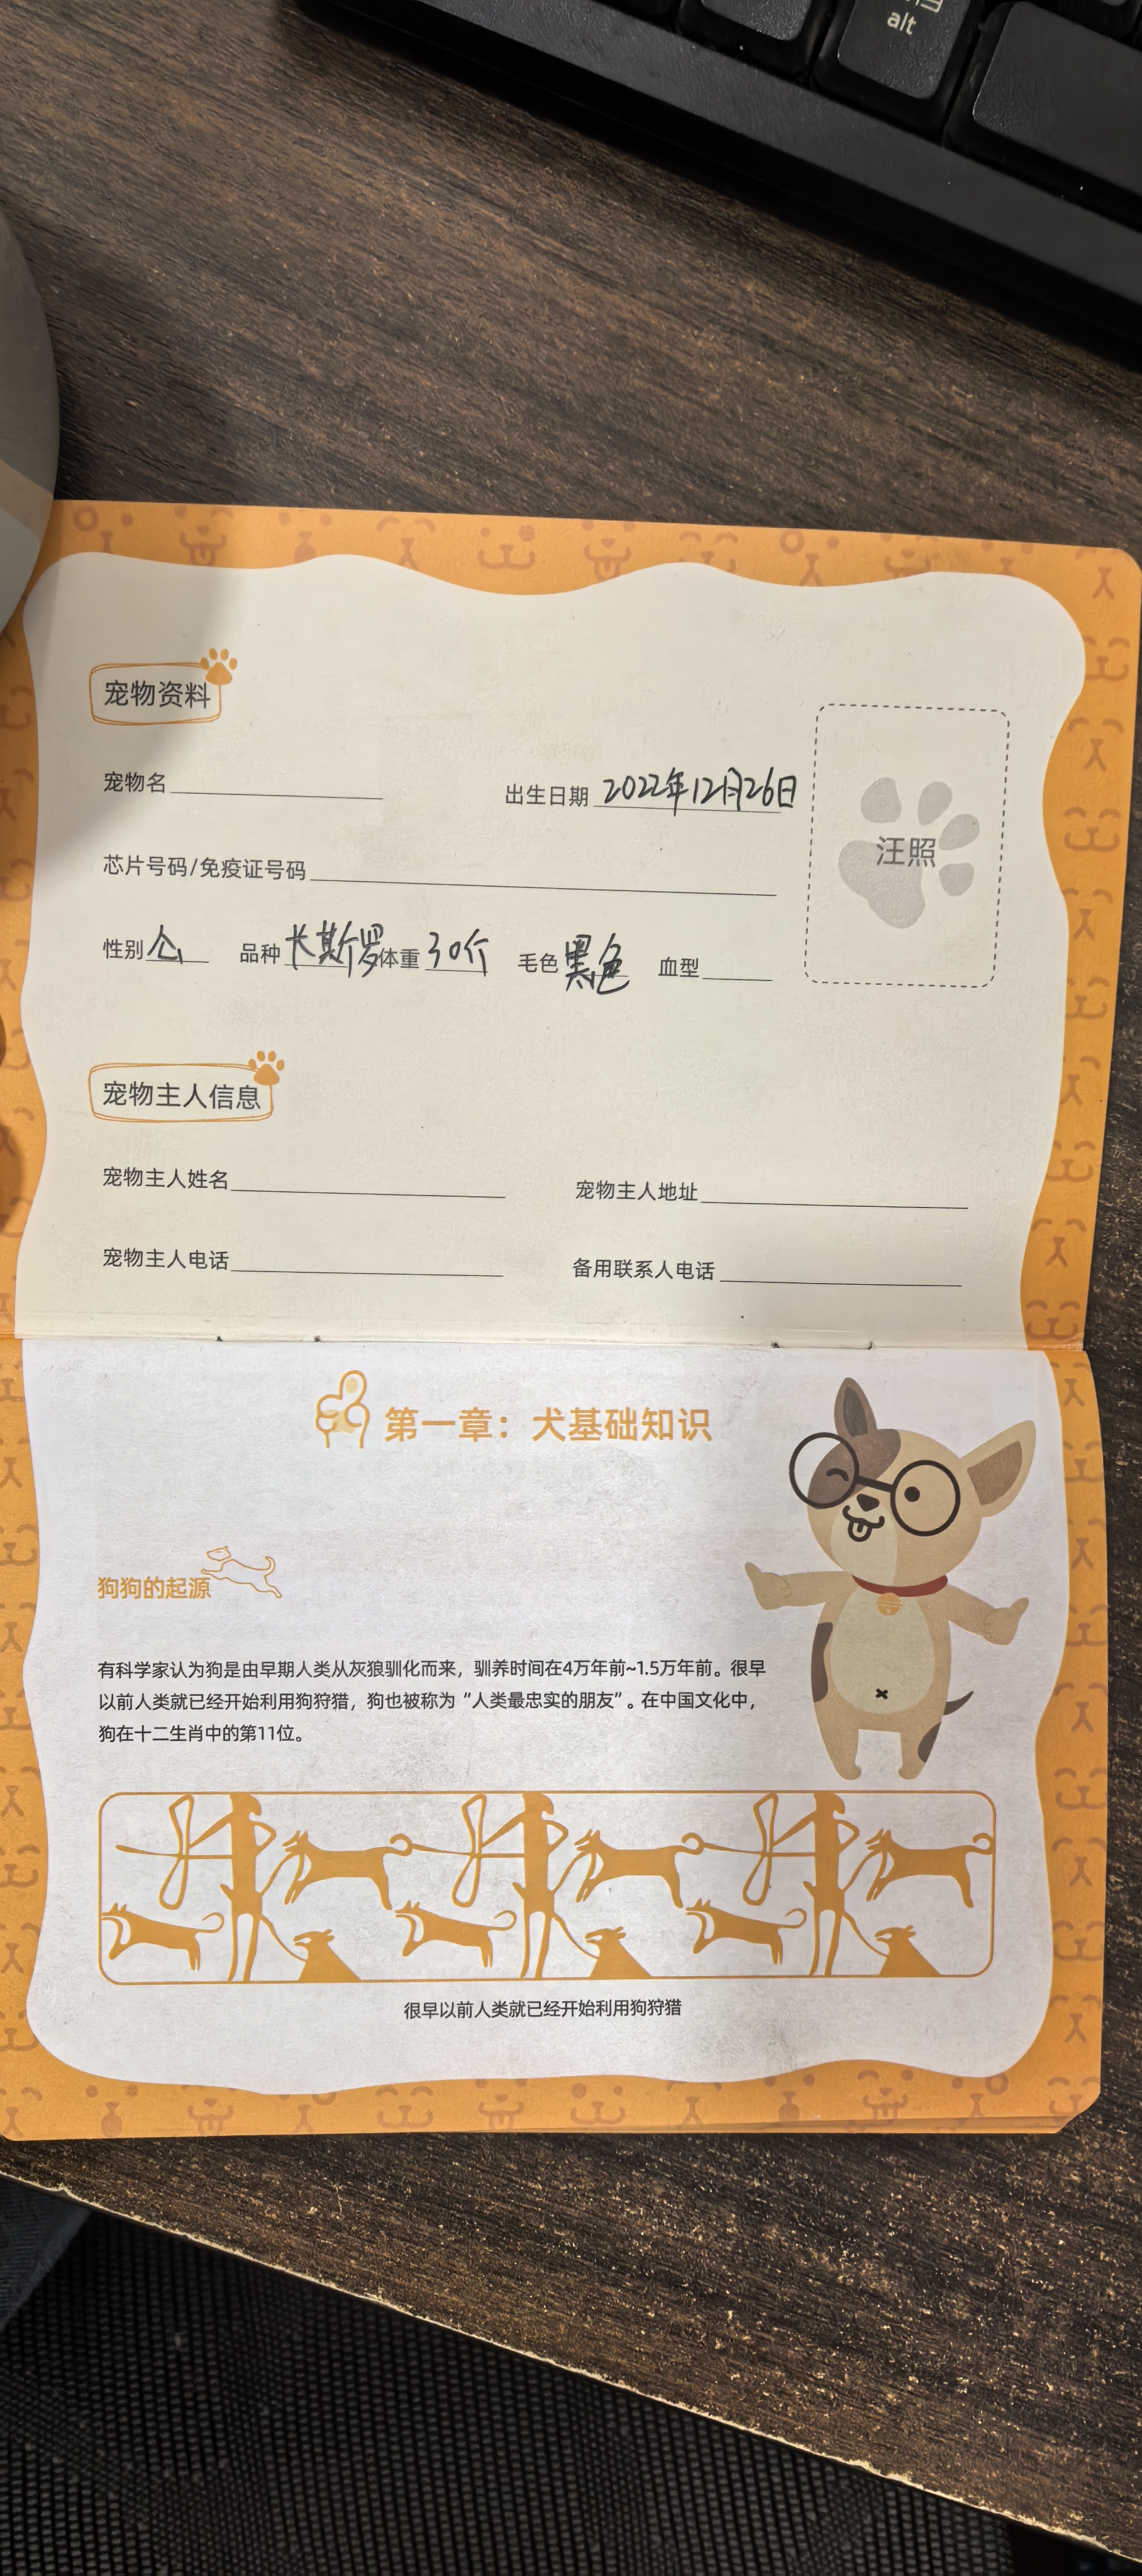 alt
宠物资料
宠物名 出生日期 2022年12月26日
芯片号码/免疫证号码
汪照
性别 公 品种 长斯罗 体重 30斤 毛色 黑色 血型
宠物主人信息
宠物主人姓名 宠物主人地址
宠物主人电话 备用联系人电话
第一章：犬基础知识
狗狗的起源
有科学家认为狗是由早期人类从灰狼驯化而来，驯养时间在4万年前~1.5万年前。很早
以前人类就已经开始利用狗狩猎，狗也被称为“人类最忠实的朋友”。在中国文化中，
狗在十二生肖中的第11位。
很早以前人类就已经开始利用狗狩猎